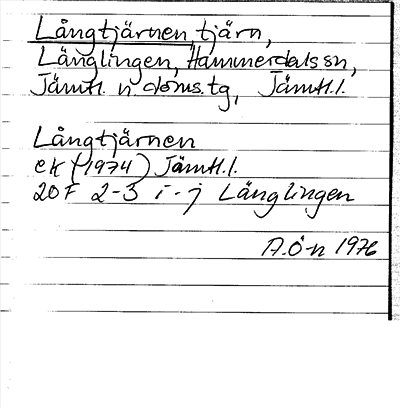 Långtjärnen, tjärn,
Länglingen, Hammerdals sn,
Jämtl. n. doms.tg, Jämtl.l.
Långtjärnen
ek (1974) Jämtl.l.
20F 2-3 i-j Länglingen
A.Ö-n 1976